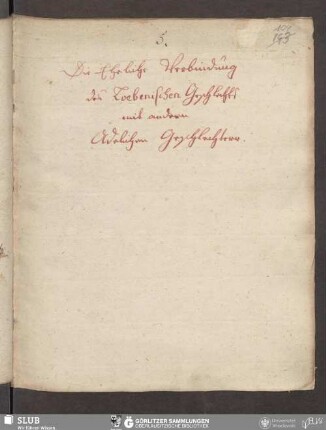 5.
Die Eheliche Verbindung
des Loebenischen Geschlechts
mit andern
Adelichen Geschlechtern.
SLUB
Wir führen Wissen.
GÖRLITZER SAMMLUNGEN
OBERLAUSITZISCHE BIBLIOTHEK